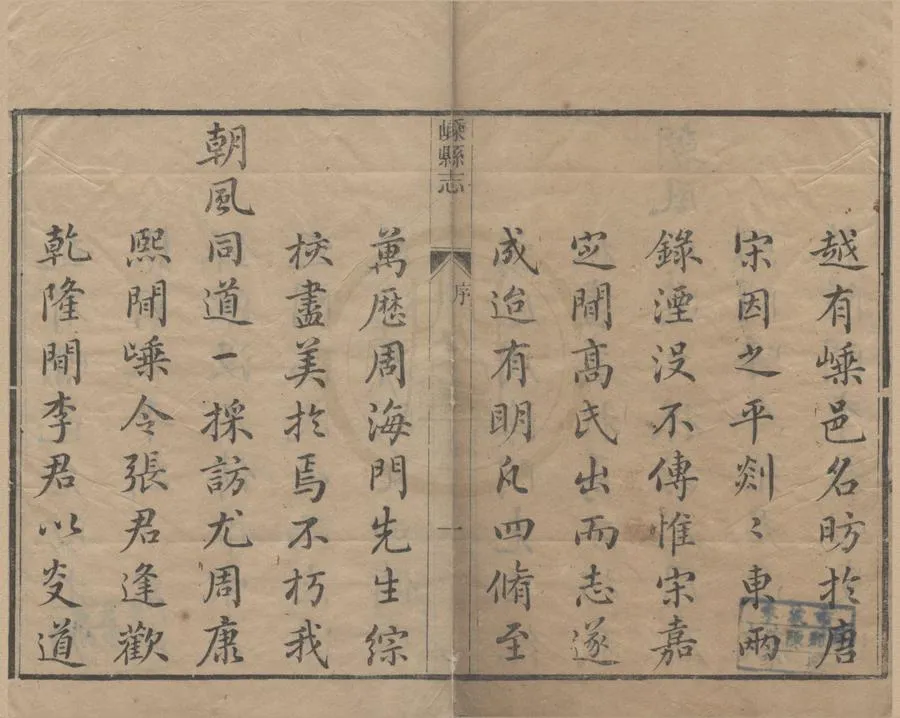 越有嵊邑名昉於唐
宋因之平剡〻東兩
錄湮沒不傳惟宋嘉
定間高氏出而志遂
成迨有明凡四脩至
嵊縣志
序
一
萬歷周海門先生綜
校盡美於焉不朽我
朝風同道一採訪尤周康
熙間嵊令張君逢歡
乾隆間李君以炎道